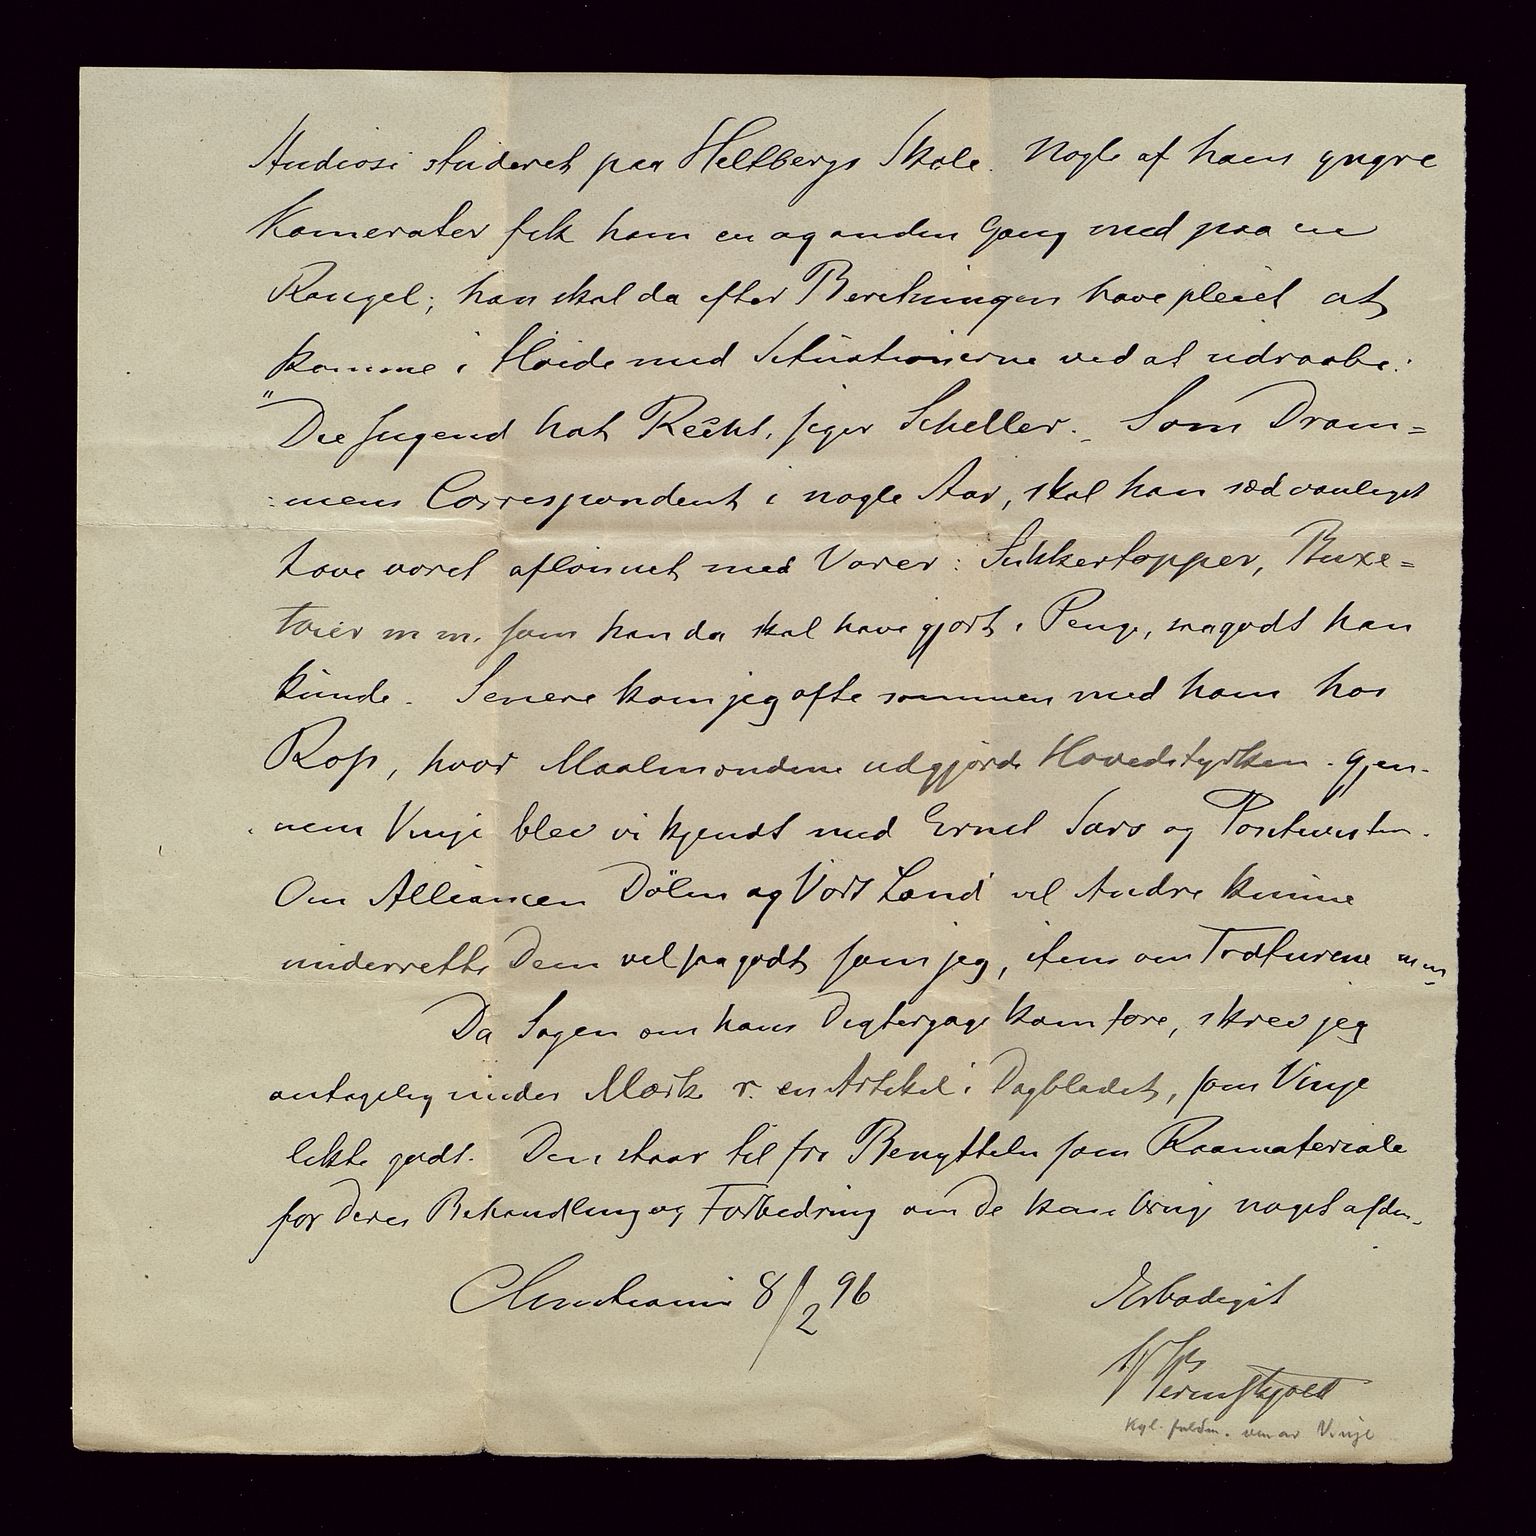 studiosi studeret paa Heltbergs Skole. Nogle af hans yngre
Kamerater fik ham en og anden Gang med paa en
Rangel; han skal da efter Beretningen have pleiet at
komme i Høide med Situationerne ved at udraabe:
"Die Jugend hat Recht, siger Scheller. Som Dram=
:mens Correspondent i nogle Aar, skal han sædvanligst
have været aflønnet med Varer: Sukkertopper, Buxe=
tøier m m. som han da skal have gjort i Penge, saagodt han
kunde. Senere kom jeg ofte sammen med ham hos
Ross, hvor Maalmændene udgjorde Hovedstyrken. Gjen-
nem Vinje blev vi kjendt med Ernst Sars og
Om Alliancen Dølen og Vort Land vil Andre kunne
underrette Dem vel saa godt som jeg, item om Fodturene m m
Da Sagen om hans Digtergage kom fore, skrev jeg
antagelig under Mærke r. en Artikel i Dagbladet, som Vinje
likte godt. Den staar til fri Benyttelse som Raamateriale
for Deres Behandling og Forbedring om De kan bringe noget af den.
Christiania 8/2 96
Ærbødigst
kgl. fuldm. ven av Vinje